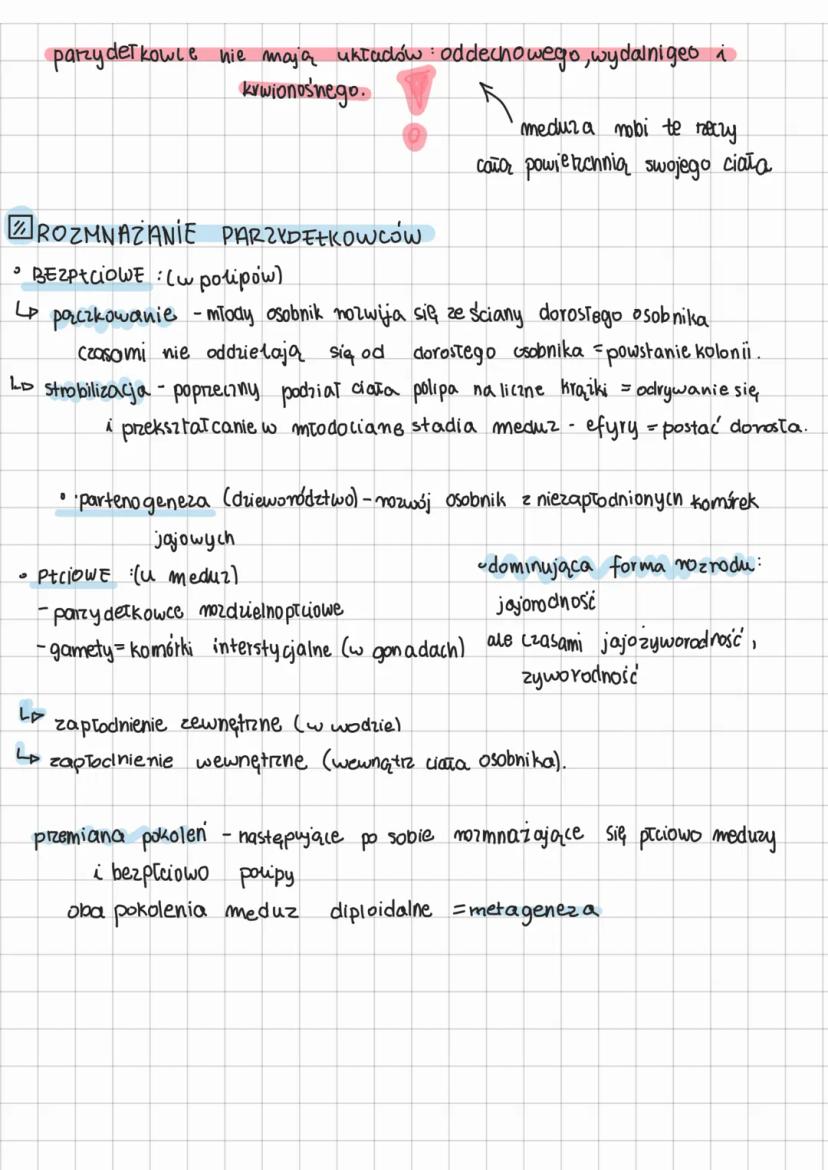 parzydełkowce nie mają układów: oddechowego, wydalnigeo i
krwionośnego. !
meduza robi te rzeczy
całą powierzchnią swojego ciała
ROZMNAŻANIE PARZYDEŁKOWCÓW
• BEZPŁCIOWE : (w polipów)
↳ pączkowanie - młody osobnik rozwija się ze ściany dorosłego osobnika
czasomi nie oddzielają się od dorosłego osobnika = powstanie kolonii.
↳ strobilizacja - poprzeczny podział ciała polipa na liczne krążki = odrywanie się
i przekształcanie w młodociane stadia meduz - efyry = postać dorosła.
• partenogeneza (dzieworództwo) - rozwój osobnik z niezapłodnionych komórek
jajowych
• PŁCIOWE : (u meduz)
- parzydełkowce rozdzielnopłciowe
- gamety = komórki interstycjalne (w gonadach)
- dominująca forma rozrodu:
jajorodność
ale czasami jajożyworodność,
żyworodność
↳ zapłodnienie zewnętrzne (w wodzie)
↳ zapłodnienie wewnętrzne (wewnątrz ciała osobnika).
przemiana pokoleń - następujące po sobie rozmnażające się płciowo meduzy
i bezpłciowo polipy
oba pokolenia meduz diploidalne = metageneza